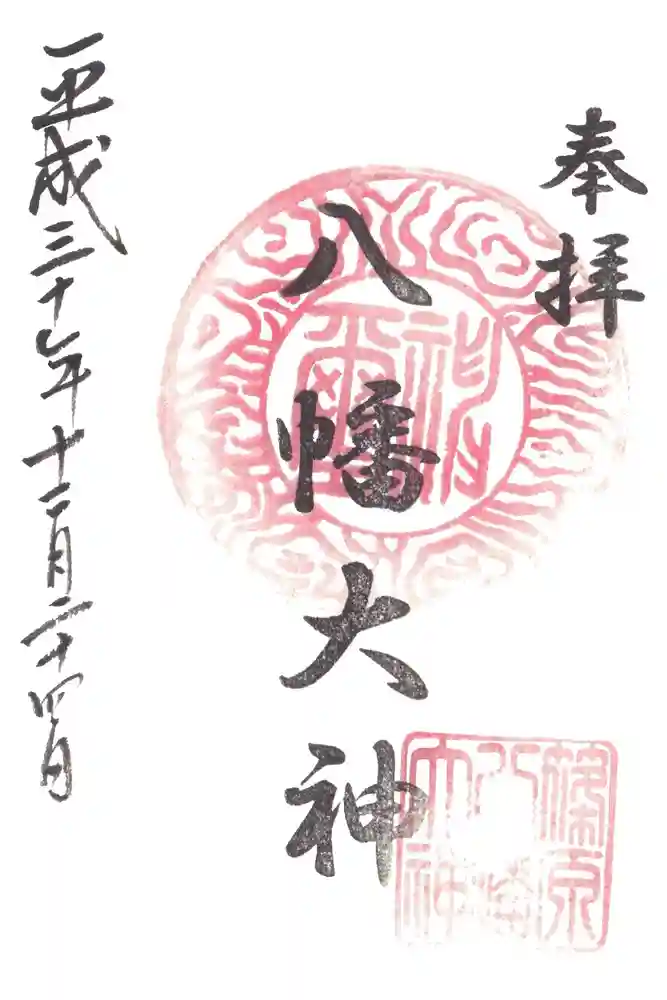 奉拝
八幡大神
平成三十年十二月二十四日
神璽
篠原
八幡
大神